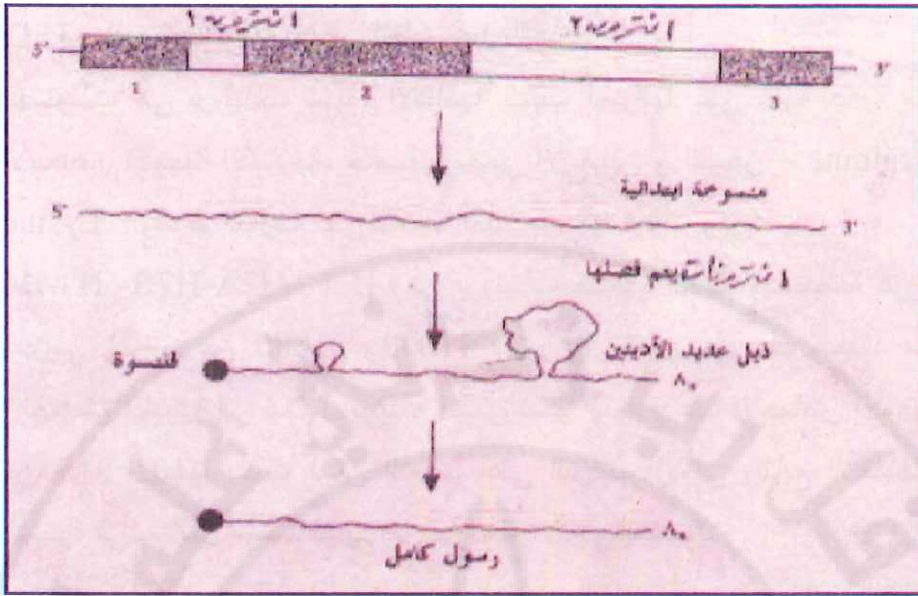 انترون ١ انترون ٢
5' 3'
1 2 3
منسوخة ابتدائية
5' 3'
يتم فصلها
ذيل عديد الأدينين
قلنسوة
Aₙ
Aₙ
رسول كامل